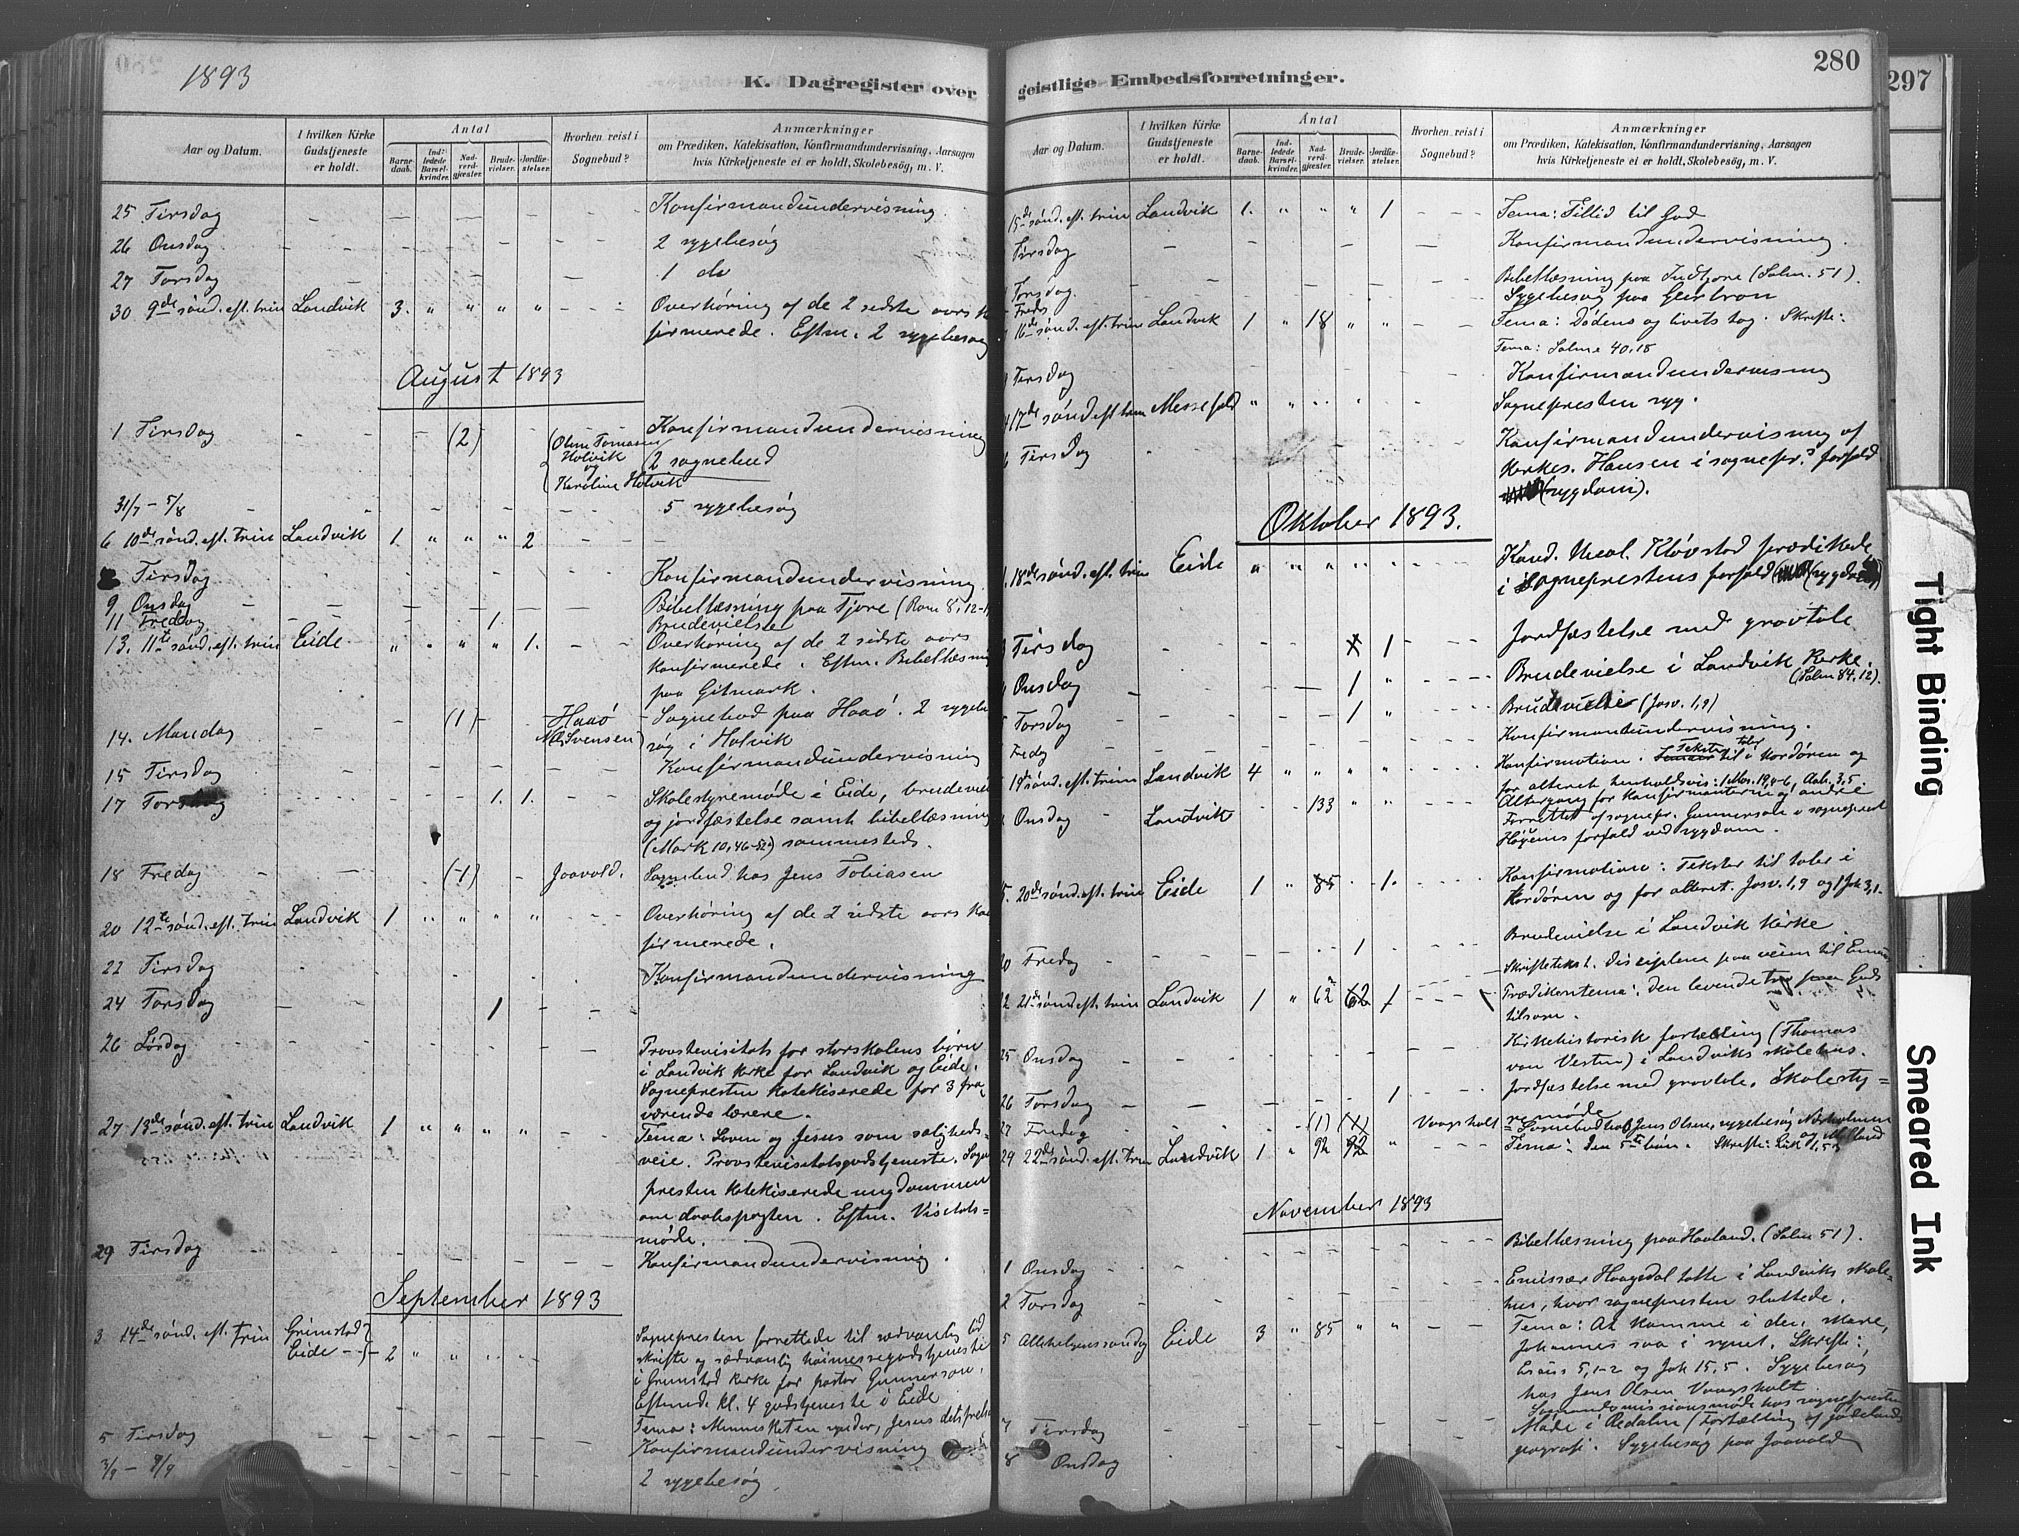 1893
K. Dagregister over
Aar og Datum.
I hvilken Kirke Gudstjeneste er holdt.
Antal
Barnedaab.
Indledede Barselkvinder.
Nadverdgjæster.
Brudevielser.
Jordfæstelser.
Hvorhen reist i Sognebud?
Anmærkninger
om Prædiken, Katekisation, Konfirmandundervisning, Aarsagen
hvis Kirketjeneste ei er holdt, Skolebesøg, m. V.
25 Tirsdag - - - - - - - Konfirmandundervisning.
26 Onsdag 2 sygebesøg
27 Torsdag 1 do
30 9de sønd. eft. trin Landvik 3. " " " " Overhøring af de 2 sidste aars k
firmerede. Eftm. 2 sygebesøg
August 1893
1 Tirsdag (2) Konfirmandundervisning
Holvik 2 sognebud
og
Karoline Holvik
31/7 - 5/8 5 sygebesøg
6 10de sønd. eft. trin Landvik 1. " " " 2
Tirsdag Konfirmandundervisning
9 Onsdag Bibellæsning paa Fjøre (Rom 8, 12-
11 Fredag 1. Brudevielse
13. 11te sønd. eft. trin Eide " " " " 1. Overhøring af de 2 sidste aars
konfirmerede. Eftm. Bibellæsning
paa Gitmark.
14. Mandag (1) Haaø Sognebud paa Haaø. 2 sygebe
Svensen søg i Holvik
15 Tirsdag Konfirmandundervisning
17 Torsdag 1. 1. Skolestyremøde i Eide, brudeviel
og jordfæstelse samt bibellæsning
(Mark 10,46-52) sammesteds.
18 Fredag (1) Jaavold. Sognebud hos Jens Tobiasen
20 12te sønd. eft. trin Landvik 1 " " " " Overhøring af de 2 sidste aars kon
firmerede.
22 Tirsdag Konfirmandundervisning
24 Torsdag 1
26 Lørdag Provstevisitats for storskolens børn
i Landvik kirke for Landvik og Eide.
Sognepresten katekiserede for 3 fra
værende lærere.
27 13de sønd. eft. trin Landvik 1 " " " " Tema: Loven og Jesus som saligheds-
veie. Provstevisitatsgudstjeneste. Sogne
presten katekiserede ungdommen
om daabspagten. Eftm. Visitats=
møde.
29 Tirsdag Konfirmandundervisning.
September 1893
3 14de sønd. eft. trin Grimstad Sognepresten forrettede til sædvanlig tid
Eide 2 " " skrifte og sædvanlig høimessegudstjeneste
i Grimstad kirke for pastor Gunnerson.
Eftermd. kl. 4 gudstjeneste i Eide
Tema: Mennesket en synder, Jesus dets frelse
5 Tirsdag Konfirmandundervisning
3/9 - 9/9 2 sygebesøg
280
geistlige Embedsforretninger.
Aar og Datum.
I hvilken Kirke Gudstjeneste er holdt.
Antal
Barnedaab.
Indledede Barselkvinder.
Nadverdgjæster.
Brudevielser.
Jordfæstelser.
Hvorhen reist i Sognebud?
Anmærkninger
om Prædiken, Katekisation, Konfirmandundervisning, Aarsagen
hvis Kirketjeneste ei er holdt, Skolebesøg, m. V.
15de sønd. eft. trin Landvik 1. " " " 1 Tema: Tillid til Gud
Tirsdag Konfirmandundervisning.
Torsdag Bibellæsning paa Indfjore (Salm. 51).
Fredag Sygebesøg paa Geirbron
16de sønd. eft. trin Landvik 1 " 18 " " Tema: Dødens og livets tog. Skrifte:
Tema: Salme 40,18
Tirsdag Konfirmandundervisning
17de sønd eft trin Messefald " " Sognepresten syg.
Tirsdag Konfirmandundervisning af
kirkes. Hansen i sognepr.s forfald
(sygdom).
Oktober 1893.
18de sønd. eft. trin Eide " " " " " Kand. theol. Kløvstad prædikede
i Sogneprestens forfald (sygdom)
Tirsdag 1 Jordfæstelse med gravtale
Onsdag 1 " Brudevielse i Landvik kirke.
(Salm 84,12).
Torsdag 1 " Brudevielse (Josv. 1,9)
Fredag Konfirmandundervisning.
19de sønd. eft. trin Landvik 4 " " " " Konfirmation. Tekster til taler i kordøren og
for alteret henholdsvis: 1 Mos. 19,4-6, Aab. 3,5.
Onsdag Landvik 133 " " Altergang for konfirmanterne og andre
Forrettet af sognepr. Gunnersen i sogneprest
Høyems forfald ved sygdom.
20de sønd. eft. trin Eide 1 " 85 1. Konfirmation: Tekster til taler i
kordøren og for alteret. Josv. 1,9 og 1 Joh 3,1.
20 Fredag 1 Brudevielse i Landvik kirke
Skriftetekst. disciplene paa veien til Emaus
22 21de sønd eft. trin Landvik 1 " 62 62 1 Prædikentema: den levende tro paa Guds
tilsavn.
25 Onsdag Kirkehistorisk fortælling (Thomas
von Vesten) i Landviks skolehus.
26 Torsdag 1 Jordfæstelse med gravtale. Skolesty=
remøde
27 Fredag (1) (1) Vaagsholt Sognebud hos Jens Olsen, sygebesøg
29 22de sønd. eft. trin Landvik 1 " 92 92 " Tema: Den 5te bøn. Skrifte: Luk 1,53
November 1893
Bibellæsning paa Haaland. (Salm 51).
1 Onsdag Emissær Haagedal talte i Landviks skole-
2 Torsdag hus, hvor sognepresten sluttede.
5 Allehelgenssøndag Eide 3 " 85 " " Tema: At komme i den skare,
Johannes saa i synet. Skrifte:
Esaias 5,1-2 og Joh 15,5. Sygebesøg
hos Jens Olsen Vaagsholt
7 Tirsdag Sømandsmissionsmøde hos sognepresten
Møde i Redalen (Fortælling af Jødelands
8 Onsdag geografi. Sygebesøg paa Jaavold
297
Tight Binding
Smeared Ink